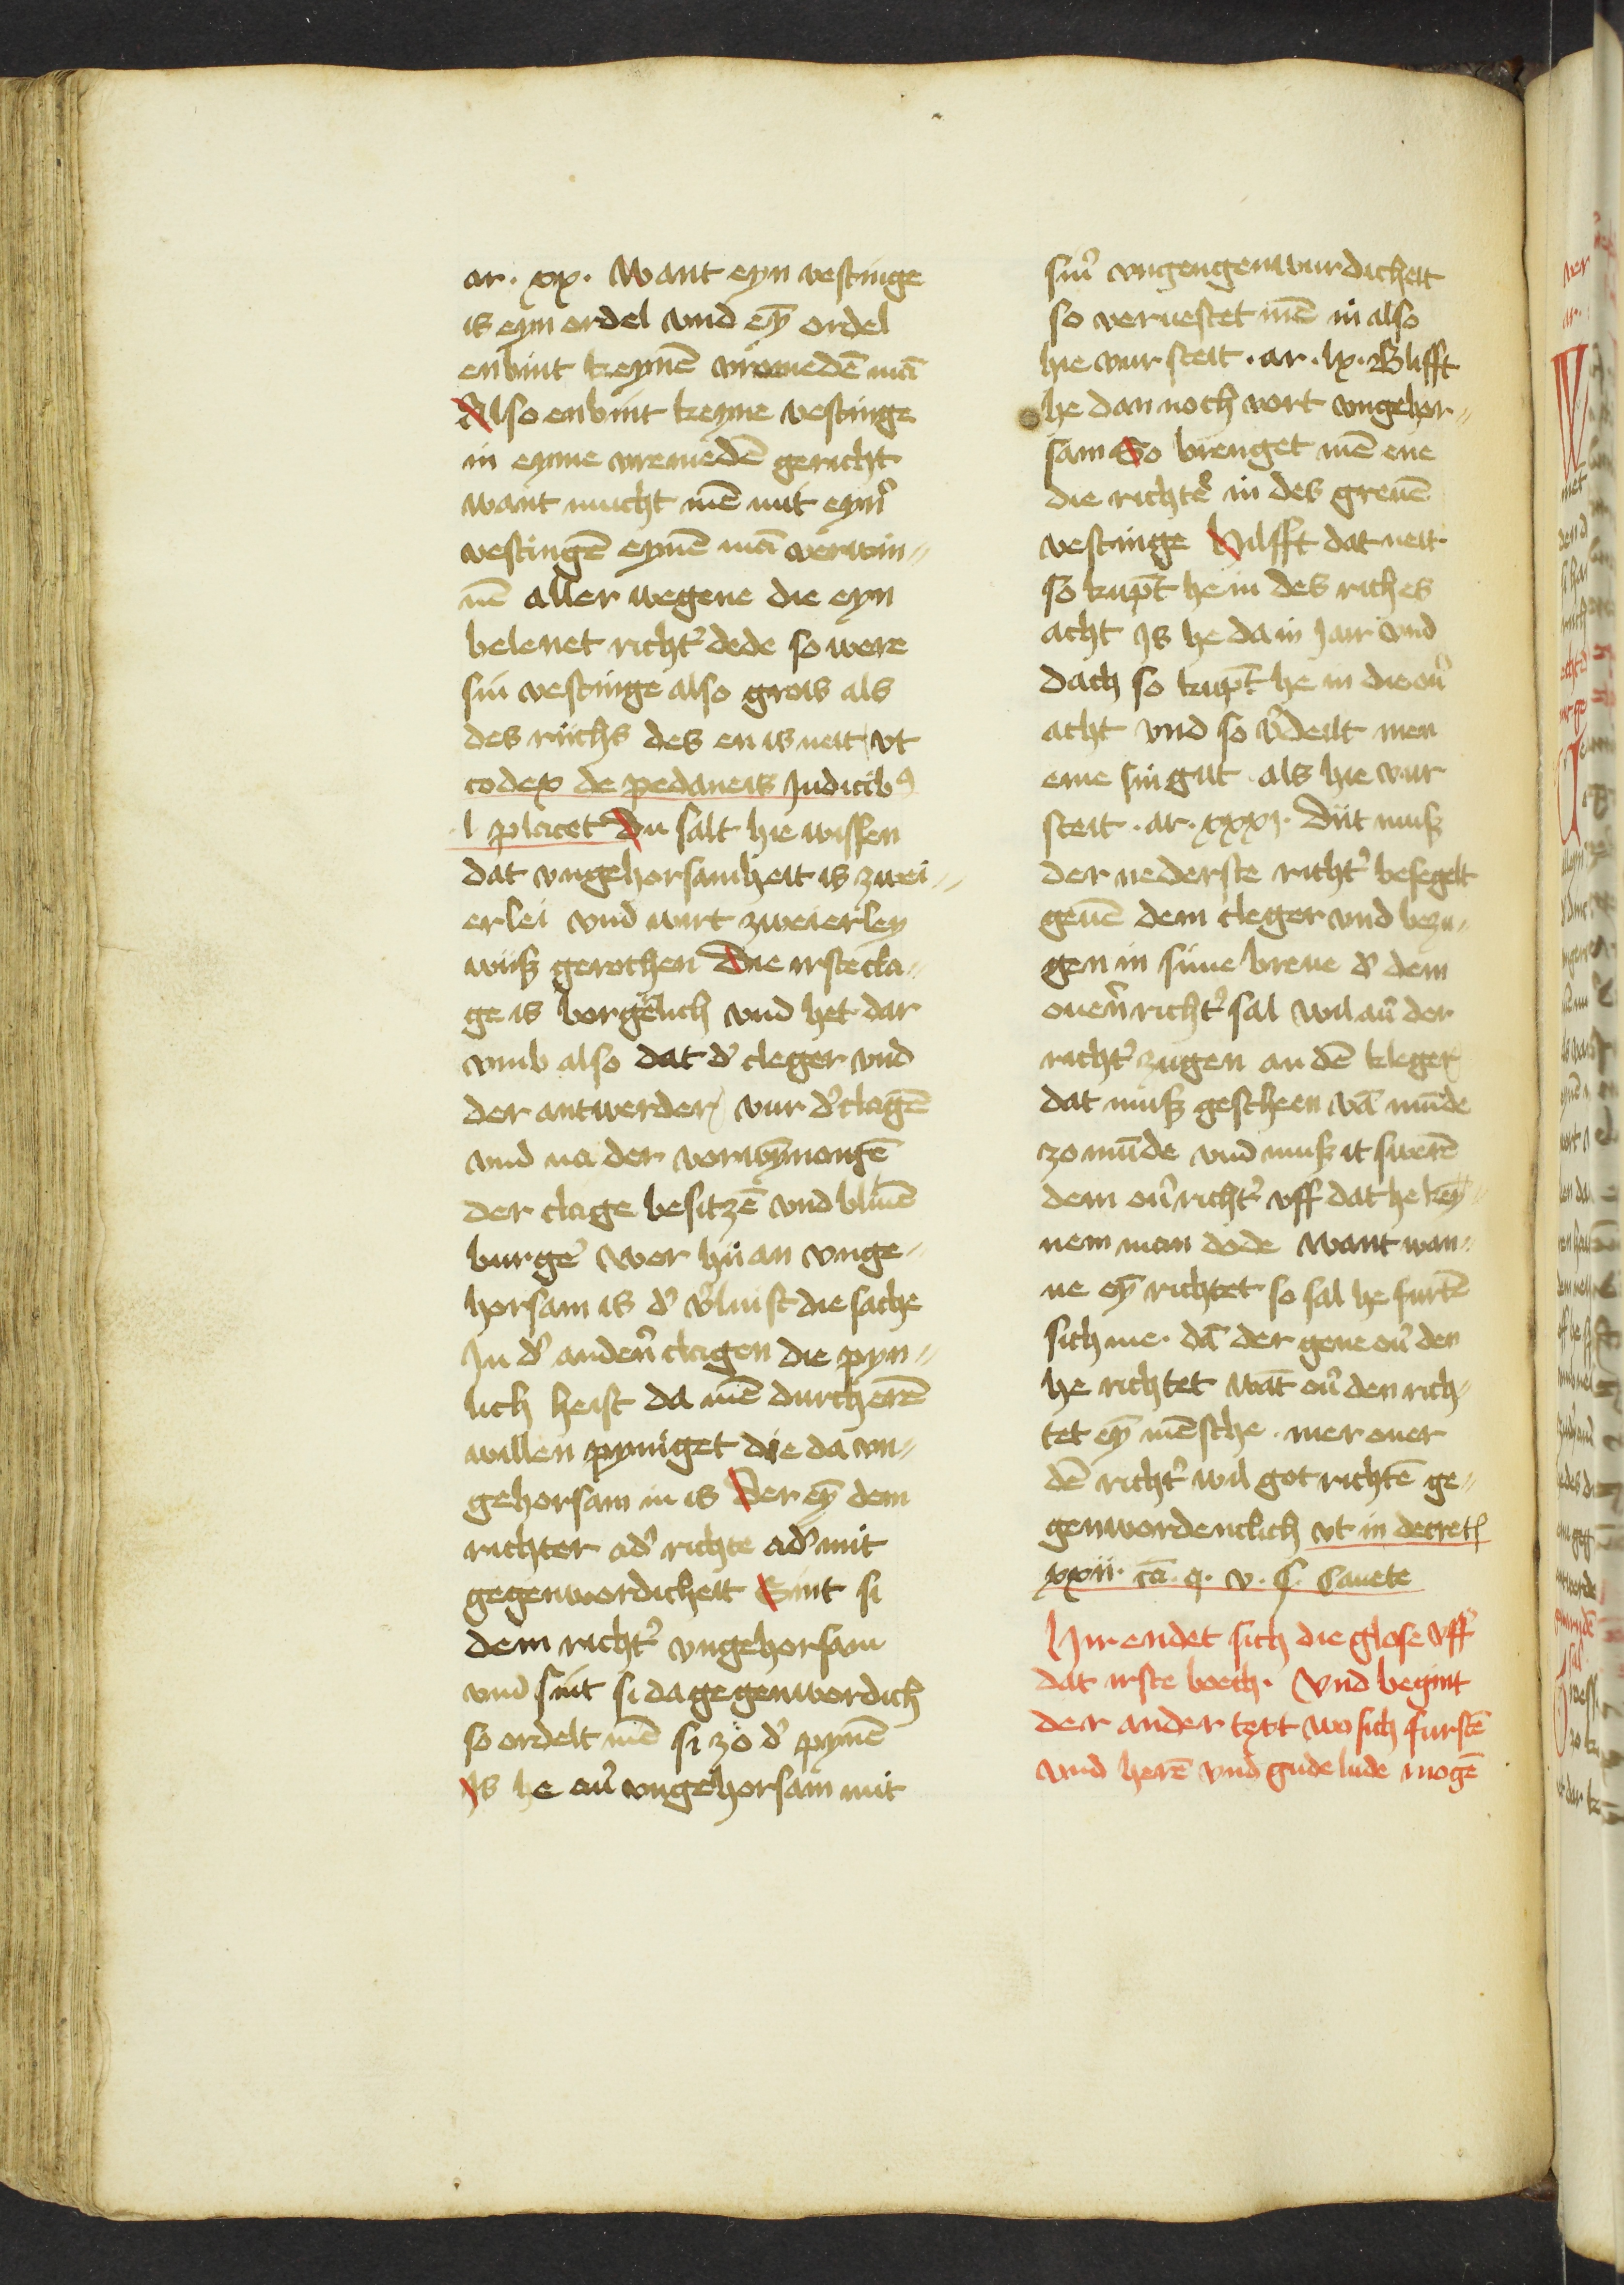 ar. xx. Want eyn vestinge
is eyn ordel vnd ey̅ ordel
enbint keyne̅ vromede̅ ma̅
Also enbint keyne vestinge
in eyme vremede̅ gericht
want mucht me̅ mit eyn̾
vestinge̅ eyne̅ ma̅ verwin⸗
ne̅ aller wegene die eyn
belenet richt̾ dede so were
sin vestinge also grois als
des riichs des en is neit vt
codex de pedaneis Judicibꝰ
l placet Du salt hie wissen
dat vngehorsamheit is zwei⸗
erlei vnd wirt zweierley
wiiß gerochen Die irste cla⸗
ge is borg̾lich vnd het dar
vmb also dat d̾ cleger vnd
der antwerder vur d̾ clage̅
vnd na der vorwy̅nonge̅
der clage besitze̅ vnd bliue̅
burge̾ Wer hii an vnge⸗
horsam is d̾ v̾luist die sache
In d̾ anden̾ clagen die pyn⸗
lich heist da me̅ durch ere̅
willen pyniget die da vn⸗
gehorsam in is Der ey̅ dem
richter ad̾ richte ad̾ mit
gegenwordicheit Sint si
dem richt̾ vngehorsam
vnd sint si da gegenwordich
so ordelt me̅ si zo d̾ pyne̅
Is he au̾ vngehorsam mit
sin̾ vngengenwurdicheit
so veruestet me̅ in also
hie vur steit . ar . lx . Blifft
he dan noch vort vngehor⸗
sam So brenget me̅ ene
die richte̾ in des greue̅
vestinge Hilfft dat neit
so kupt̅ he in des riches
acht Is he da in Jair vnd
dach so kupt̅ he in die ou̾
acht vnd so v̾deilt men
eme sin gut als hie vur
steit . ar . xxxj . Diit muß
der nederste richt̾ besegelt
geue̅ dem cleger vnd bezu⸗
gen in sime breue d̾ dem
ouen̾ richt̾ sal wil au̾ der
richt̾ zugen an de̅ kleger
dat muß gescheen va̅ mu̅de
zo mu̅de vnd muß it swere̅
dem ou̾ richt̾ vff dat he key̅⸗
nem man dode want wan⸗
ne ey̅ richtet so sal he furte̅
sich me . da̅ der gene ou̾ den
he richtet wa̅t ou̾ den rich⸗
tet ey̅ me̅sche . mer ouer
de̅ richt̾ wil got richte̅ ge⸗
genwordenclich vt in decret
xxii. ca̅. q. v. c. Cauete
Hir endet sich die glose vff
dat irste boech . Vnd begint
der ander text wo sich furste̅
vnd here̅ vnd gude lude moge̅